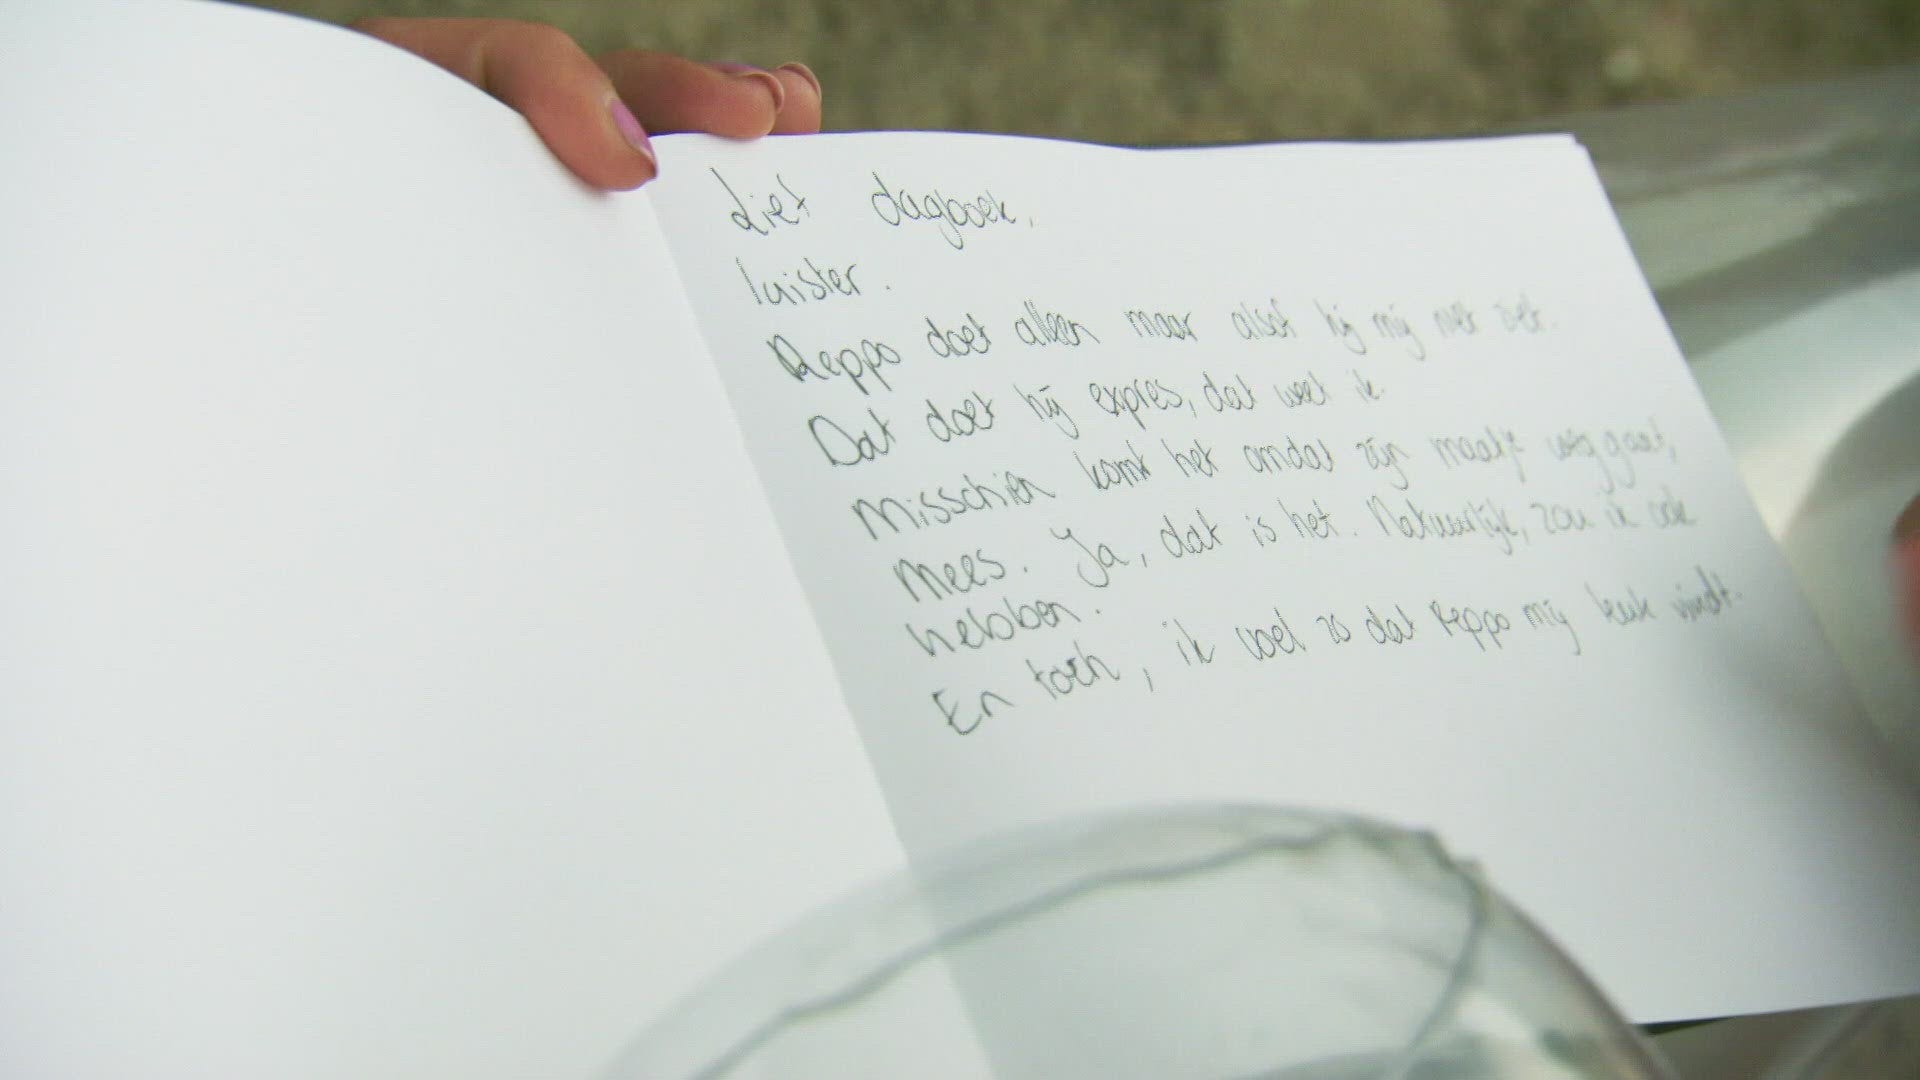 Lief dagboek,
luister.
Reppo doet alleen maar alsof hij mij niet ziet.
Dat doet hij expres, dat weet ik.
Misschien komt het omdat zijn maatje weggaat,
Mees. Ja, dat is het. Natuurlijk, zou ik ook
hebben.
En toch, ik voel zo dat Reppo mij leuk vindt.